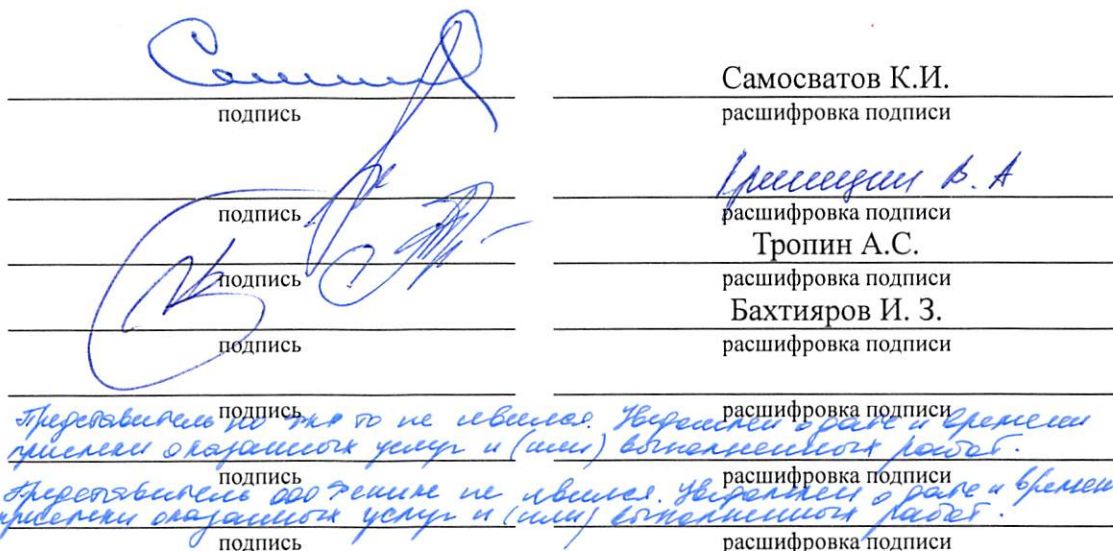 Самосватов К.И.
подпись расшифровка подписи
В. А
подпись расшифровка подписи
Тропин А.С.
подпись расшифровка подписи
Бахтияров И. З.
подпись расшифровка подписи
подпись расшифровка подписи
Представитель не явился. Уведомлен о дате и времени
приемки оказанных услуг и (или) выполненных работ.
подпись расшифровка подписи
Представитель ООО не явился. Уведомлен о дате и времени
приемки оказанных услуг и (или) выполненных работ.
подпись расшифровка подписи